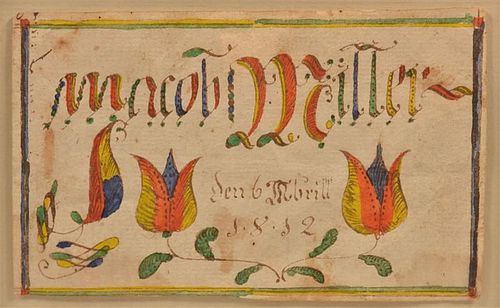 Jacob Miller
Den 6 Abrill
1.8.12